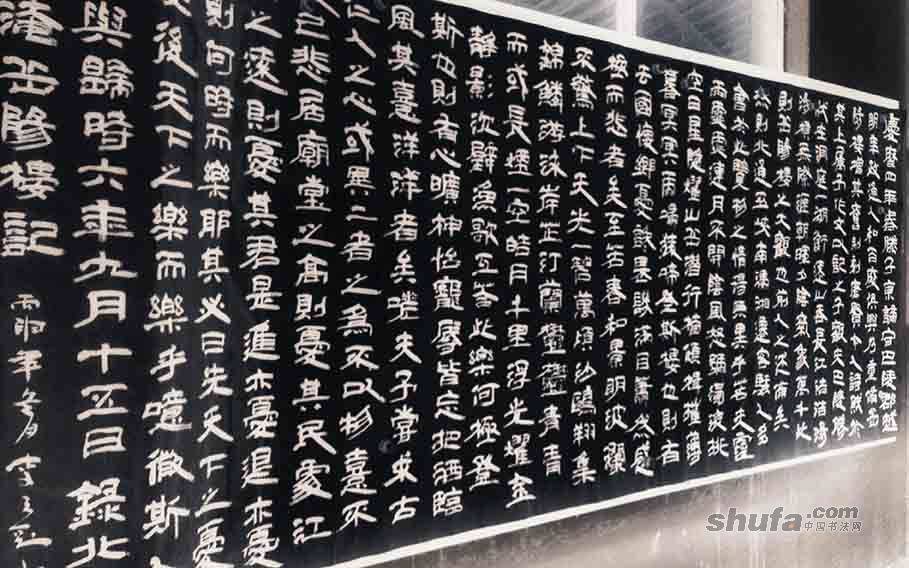 慶曆四年春滕子京謫守巴陵郡越
明年政通人和百廢俱興乃重脩岳
陽樓增其舊制刻唐賢今人詩賦於
其上屬予作文以記之予觀夫巴陵勝
狀在洞庭一湖銜遠山吞長江浩浩湯
湯橫無際涯朝暉夕陰氣象萬千此
則岳陽樓之大觀也前人之述備矣
然則北通巫峽南極瀟湘遷客騷人多
會於此覽物之情得無異乎若夫霪
雨霏霏連月不開陰風怒號濁浪排
空日星隱燿山岳潛行檣傾楫摧薄
暮冥冥虎嘯猿啼登斯樓也則有
去國懷鄉憂讒畏譏滿目蕭然感
極而悲者矣至若春和景明波瀾
不驚上下天光一碧萬頃沙鷗翔集
錦鱗游泳岸芷汀蘭鬱鬱青青
而或長煙一空皓月千里浮光耀金
靜影沉璧漁歌互答此樂何極登
斯也則有心曠神怡寵辱皆忘把酒臨
風其喜洋洋者矣嗟夫予嘗求古
仁人之心或異二者之為不以物喜不
己悲居廟堂之高則憂其民處江
之遠則憂其君是進亦憂退亦憂
則何時而樂耶其必曰先天下之憂
後天下之樂而樂乎噫微斯人
與歸時六年九月十五日錄北
淹岳陽樓記
shufa.com
中国书法网